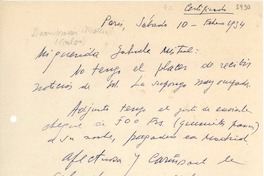 Certificado
París, Sábado 10 - Febrero 1934
Mi querida Gabriela Mistral:
No tengo el placer de recibir
noticias de Ud. La supongo muy ocupada.
Adjunto tengo el gusto de enviarle
cheque de 500 Frs. (quinientos francos)
a su orden, pagadero en Madrid.
Afectuosa y